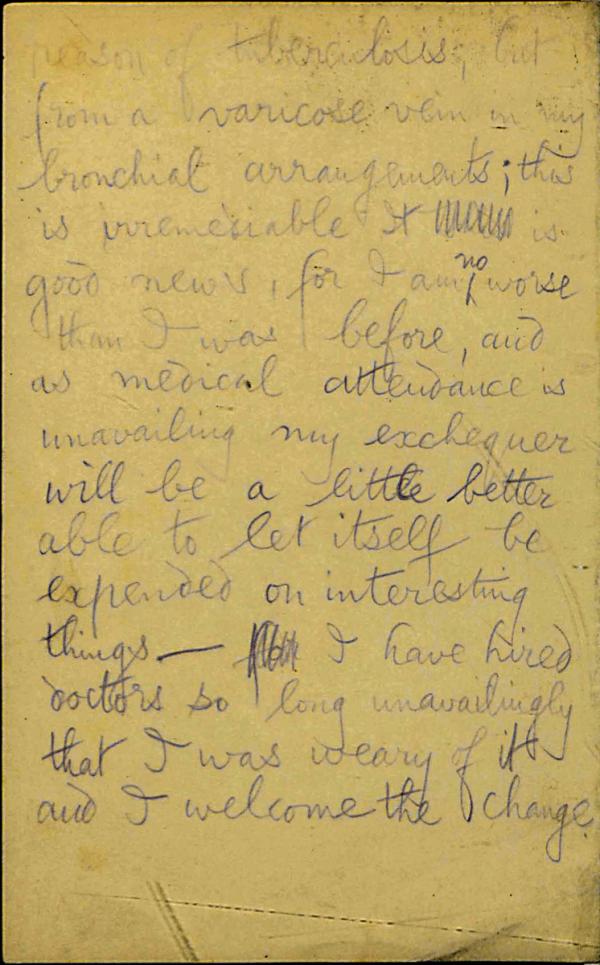 reason of tuberculosis, but
from a varicose vein in my
bronchial arrangements; this
is irremediable It is
good news, for I am no worse
than I was before, and
as medical attendance is
unavailing my exchequer
will be a little better
able to let itself be
expended on interesting
things — I have hired
doctors so long unavailingly
that I was weary of it
and I welcome the change.